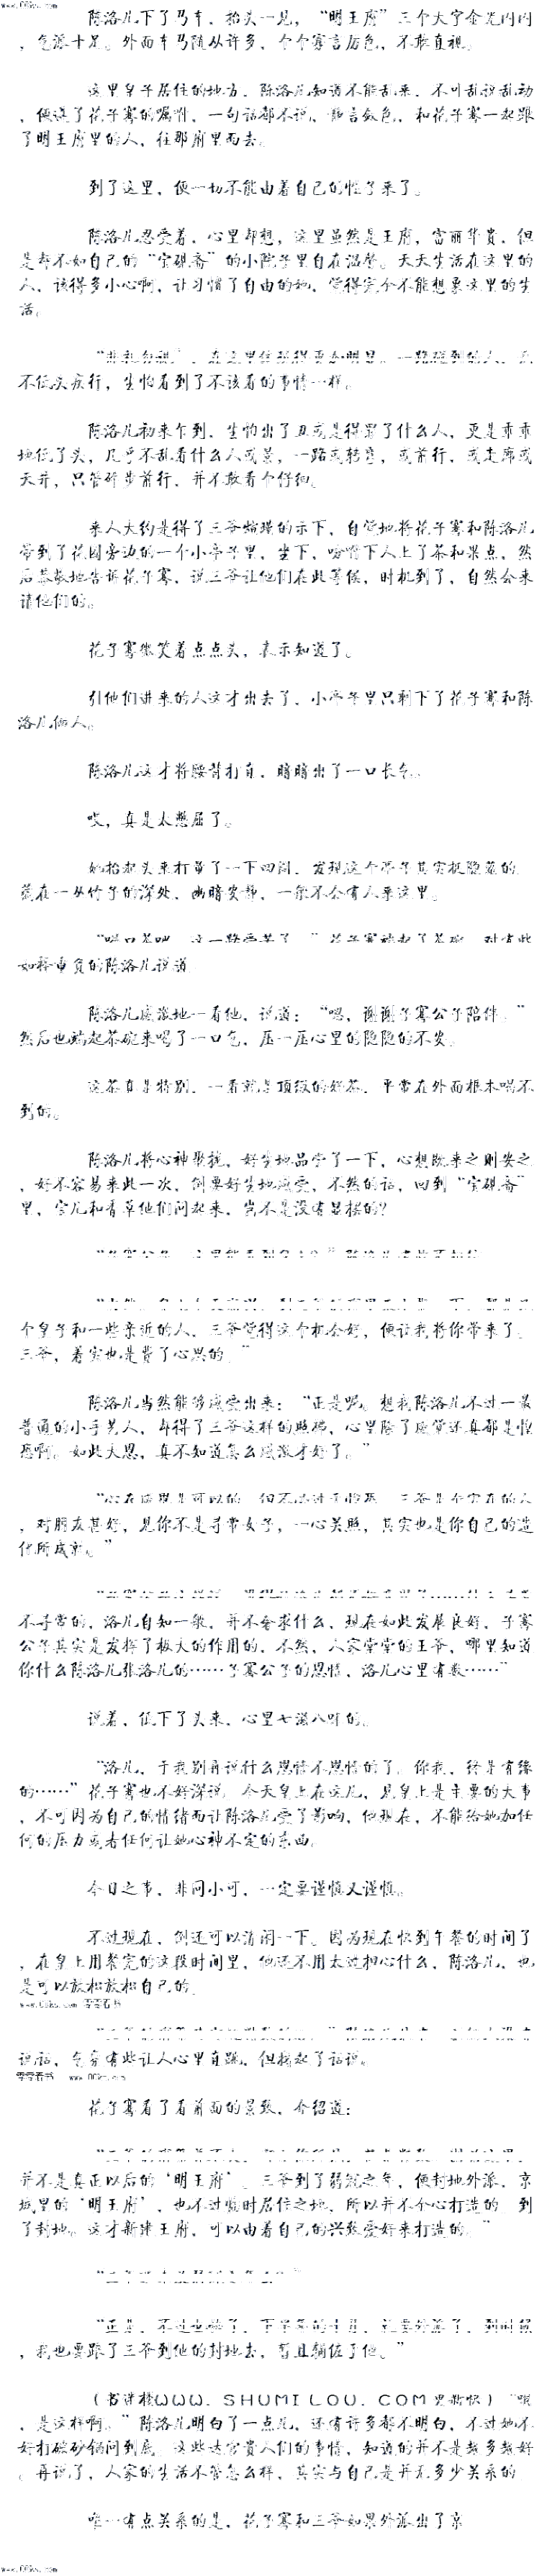 www.00ks.com
陈洛儿下了马车，抬头一见，“明王府”三个大字金光闪闪
，气派十足。外面车马随从许多，个个寡言厉色，不敢直视。
这里皇子居住的地方，陈洛儿知道不能乱来，不可乱说乱动
，便遵了花子骞的嘱咐，一句话都不说，静言敛色，和花子骞一起跟
了明王府里的人，往那府里而去。
到了这里，便一切不能由着自己的性子来了。
陈洛儿忍受着，心里却想，这里虽然是王府，富丽华贵，但
是却不如自己的“宝砚斋”的小院子里自在温馨。天天生活在这里的
人，该得多小心啊，让习惯了自由的她，觉得完全不能想象这里的生
活。
不低头疾行，生怕看到了不该看的事情一样。
陈洛儿初来乍到，生怕出了丑或是得罪了什么人，更是乖乖
地低了头，几乎不乱看什么人或景，一路或转弯，或前行，或走廊或
天井，只管碎步前行，并不敢看个仔细。
来人大约是得了三爷翰璟的示下，自觉地将花子骞和陈洛儿
带到了花园旁边的一个小亭子里，坐下，吩咐下人上了茶和果点，然
后恭敬地告诉花子骞，说三爷让他们在此等候，时机到了，自然会来
请他们的。
花子骞微笑着点点头，表示知道了。
引他们进来的人这才出去了，小亭子里只剩下了花子骞和陈
洛儿俩人。
陈洛儿这才将腰背打直，暗暗出了一口长气。
哎，真是太憋屈了。
她抬起头来打量了一下四周，发现这个亭子其实挺隐蔽的，
藏在一丛竹子的深处，幽暗安静，一般不会有人来这里。
“喝口茶吧，这一路受苦了。”花子骞端起了茶碗，对有些
如释重负的陈洛儿说道。
陈洛儿感激地一看他，说道：“嗯，谢谢子骞公子陪伴。”
然后也端起茶碗来喝了一口气，压一压心里的隐隐的不安。
这茶真是特别，一看就是顶级的好茶，平常在外面根本喝不
到的。
陈洛儿将心神聚拢，好生地品学了一下，心想既来之则安之
，好不容易来此一次，倒要好生地感受，不然的话，回到“宝砚斋”
里，宝儿和青草他们问起来，岂不是没有显摆的？
个皇子和一些亲近的人，三爷觉得这个机会好，便让我将你带来了。
三爷，着实也是费了心思的。”
陈洛儿当然能够感受出来：“正是呢。想我陈洛儿不过一最
普通的小手艺人，却得了三爷这样的照拂，心里除了感激还真都是惶
恐啊。如此大恩，真不知道怎么感激才好了。”
，对朋友甚好，见你不是寻常女子，一心关照，其实也是你自己的造
化所成就。”
不寻常的，洛儿自知一般，并不奢求什么，现在如此发展良好，子骞
公子其实是发挥了极大的作用的，不然，人家堂堂的王爷，哪里知道
你什么陈洛儿张洛儿的……子骞公子的恩情，洛儿心里有数……”
说着，低下了头来，心里七滋八味的。
“洛儿，于我别再说什么恩情不恩情的了，你我，终是有缘
的……”花子骞也不好深说，今天皇上在这儿，见皇上是主要的大事
，不可因为自己的情绪而让陈洛儿受了影响，他现在，不能给她加任
何的压力或者任何让她心神不定的东西。
今日之事，非同小可，一定要谨慎又谨慎。
不过现在，倒还可以清闲一下。因为现在快到午餐的时间了
，在皇上用餐完的这段时间里，他还不用太过担心什么，陈洛儿，也
是可以放松放松自己的。
www.00ks.com 零零看书
说话，气氛有些让人心里直跳，但找起了话说。
零零看书 www.00ks.com
花子骞看了看前面的景致，介绍道：
并不是真正以后的‘明王府’。三爷到了弱冠之年，便封地外派，京
城里的‘明王府’，也不过暂时居住之地，所以并不全心打造的，到
了封地。这才新建王府，可以由着自己的兴致爱好来打造的。”
“正是，不过也快了，下半年的十月，就要外派了，到时候
，我也要跟了三爷到他的封地去，暂且辅佐了他。”
（书迷楼WWW．SHUMILOU．COM更新快）“哦
，是这样啊。”陈洛儿明白了一点儿，还有许多都不明白，不过她不
好打破砂锅问到底，这些达官贵人们的事情，知道的并不是越多越好
。再说了，人家的生活不管怎么样，其实与自己是并无多少关系的
唯一有点关系的是，花子骞和三爷如果外派出了京
www.00ks.com